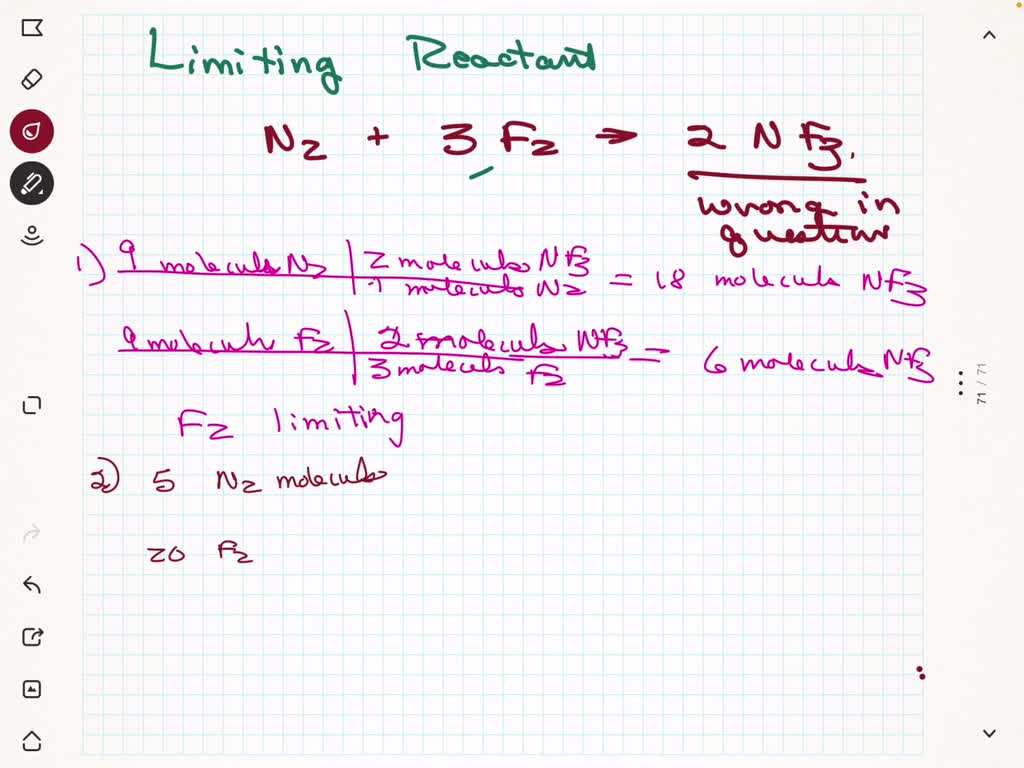 Limiting Reactant
N2 + 3 F2 → 2 NF3.
wrong in
question
1) 9 molecules N2 | 2 molecules NF3 = 18 molecules NF3
1 molecules N2
9 molecules F2 | 2 molecules NF3 = 6 molecules NF3
3 molecules F2
F2 limiting
2) 5 N2 molecules
20 F2
71 / 71